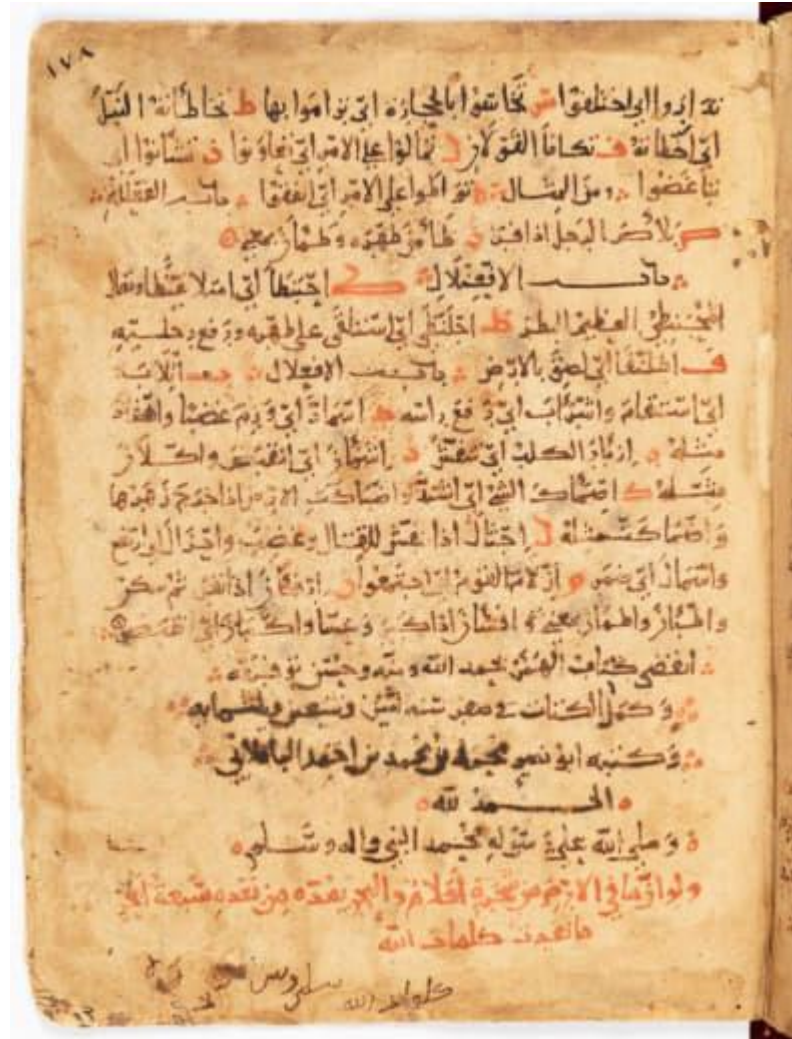 ١٧٨
اي اختلفوا بالحجارة اي تراموا بها ط تخاطأته النبل
اي اخطأته ف تكافأ القوم ل تمالؤا على الامر اي تعاونوا ن تشانؤا اي
تباغضوا ومن المثال ط تواطؤا على الامر اي اتفقوا باب الفعللة
ص بلأص الرجل اذا ن طأمن ظهره وطمأن بمعنى
باب الافعنلال احبنطأ اي امتلا غيظا ويقال
المحبنطئ العظيم البطن ظ اجلنظأ اي استلقى على ظهره ورفع رجليه
ف اي لصق بالارض باب الافعلال ب اتلأب
اي استقام واشرأب اي رفع راسه د اسمأد اي ورم غضبا
مثله ر ازبأر الكلب اي تنفش ز اشمأز اي انقبض واكلأز
مثله ك اصمأك الشيء اي اشتد واضمأكت الارض اذا خرج زهرها
واضمأكت مثله ل اجثأل اذا نفش للقتال وغضب واجذأل اي ارتفع
واسمأل اي ضمر م ازلأم القوم اي اجتمعوا ن ارفأن اذا نفر ثم سكن
واطبأن واطمأن بمعنى
انقضى كتاب الهمز بحمد الله ومنه وحسن توفيقه
وكمل الكتاب في صفر سنه اثنين وتسعين وثلثمايه
وكتبه ابو نصر محمد بن محمد بن احمد الباقلاني
الحمد لله
وصلى الله على رسوله محمد النبي واله وسلم
ولو ان ما في الارض من شجرة اقلام والبحر يمده من بعده سبعة ابحر
ما نفدت كلمات الله